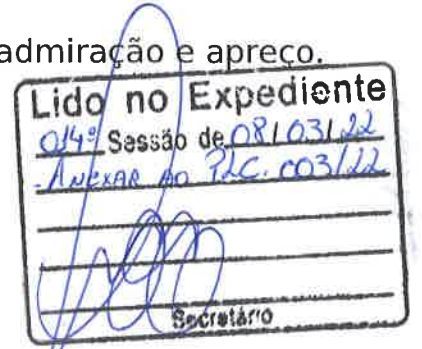 admiração e apreço.
Lido no Expediente
014ª Sessão de 08/03/22
- ANEXAR AO PLC. 003/22
Secretário